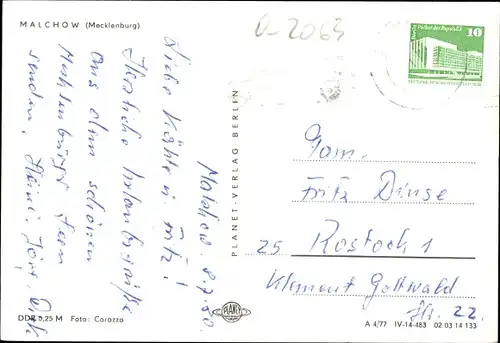 MALCHOW (Mecklenburg)
D-2063
10
Malchow, 8.7.80.
Liebe Käthe u. Fritz!
Herzliche Urlaubsgrüße
aus dem schönen
Mecklenburger Seen
senden Heini, Jörg, Dirk
DDR 0,25 M Foto: Corazza
PLANET-VERLAG BERLIN
PLANET
Fam.
Fritz Dinse
25 Rostock 1
Klement Gottwald
Str. 22.
A 4/77 IV-14-483 02 03 14 133